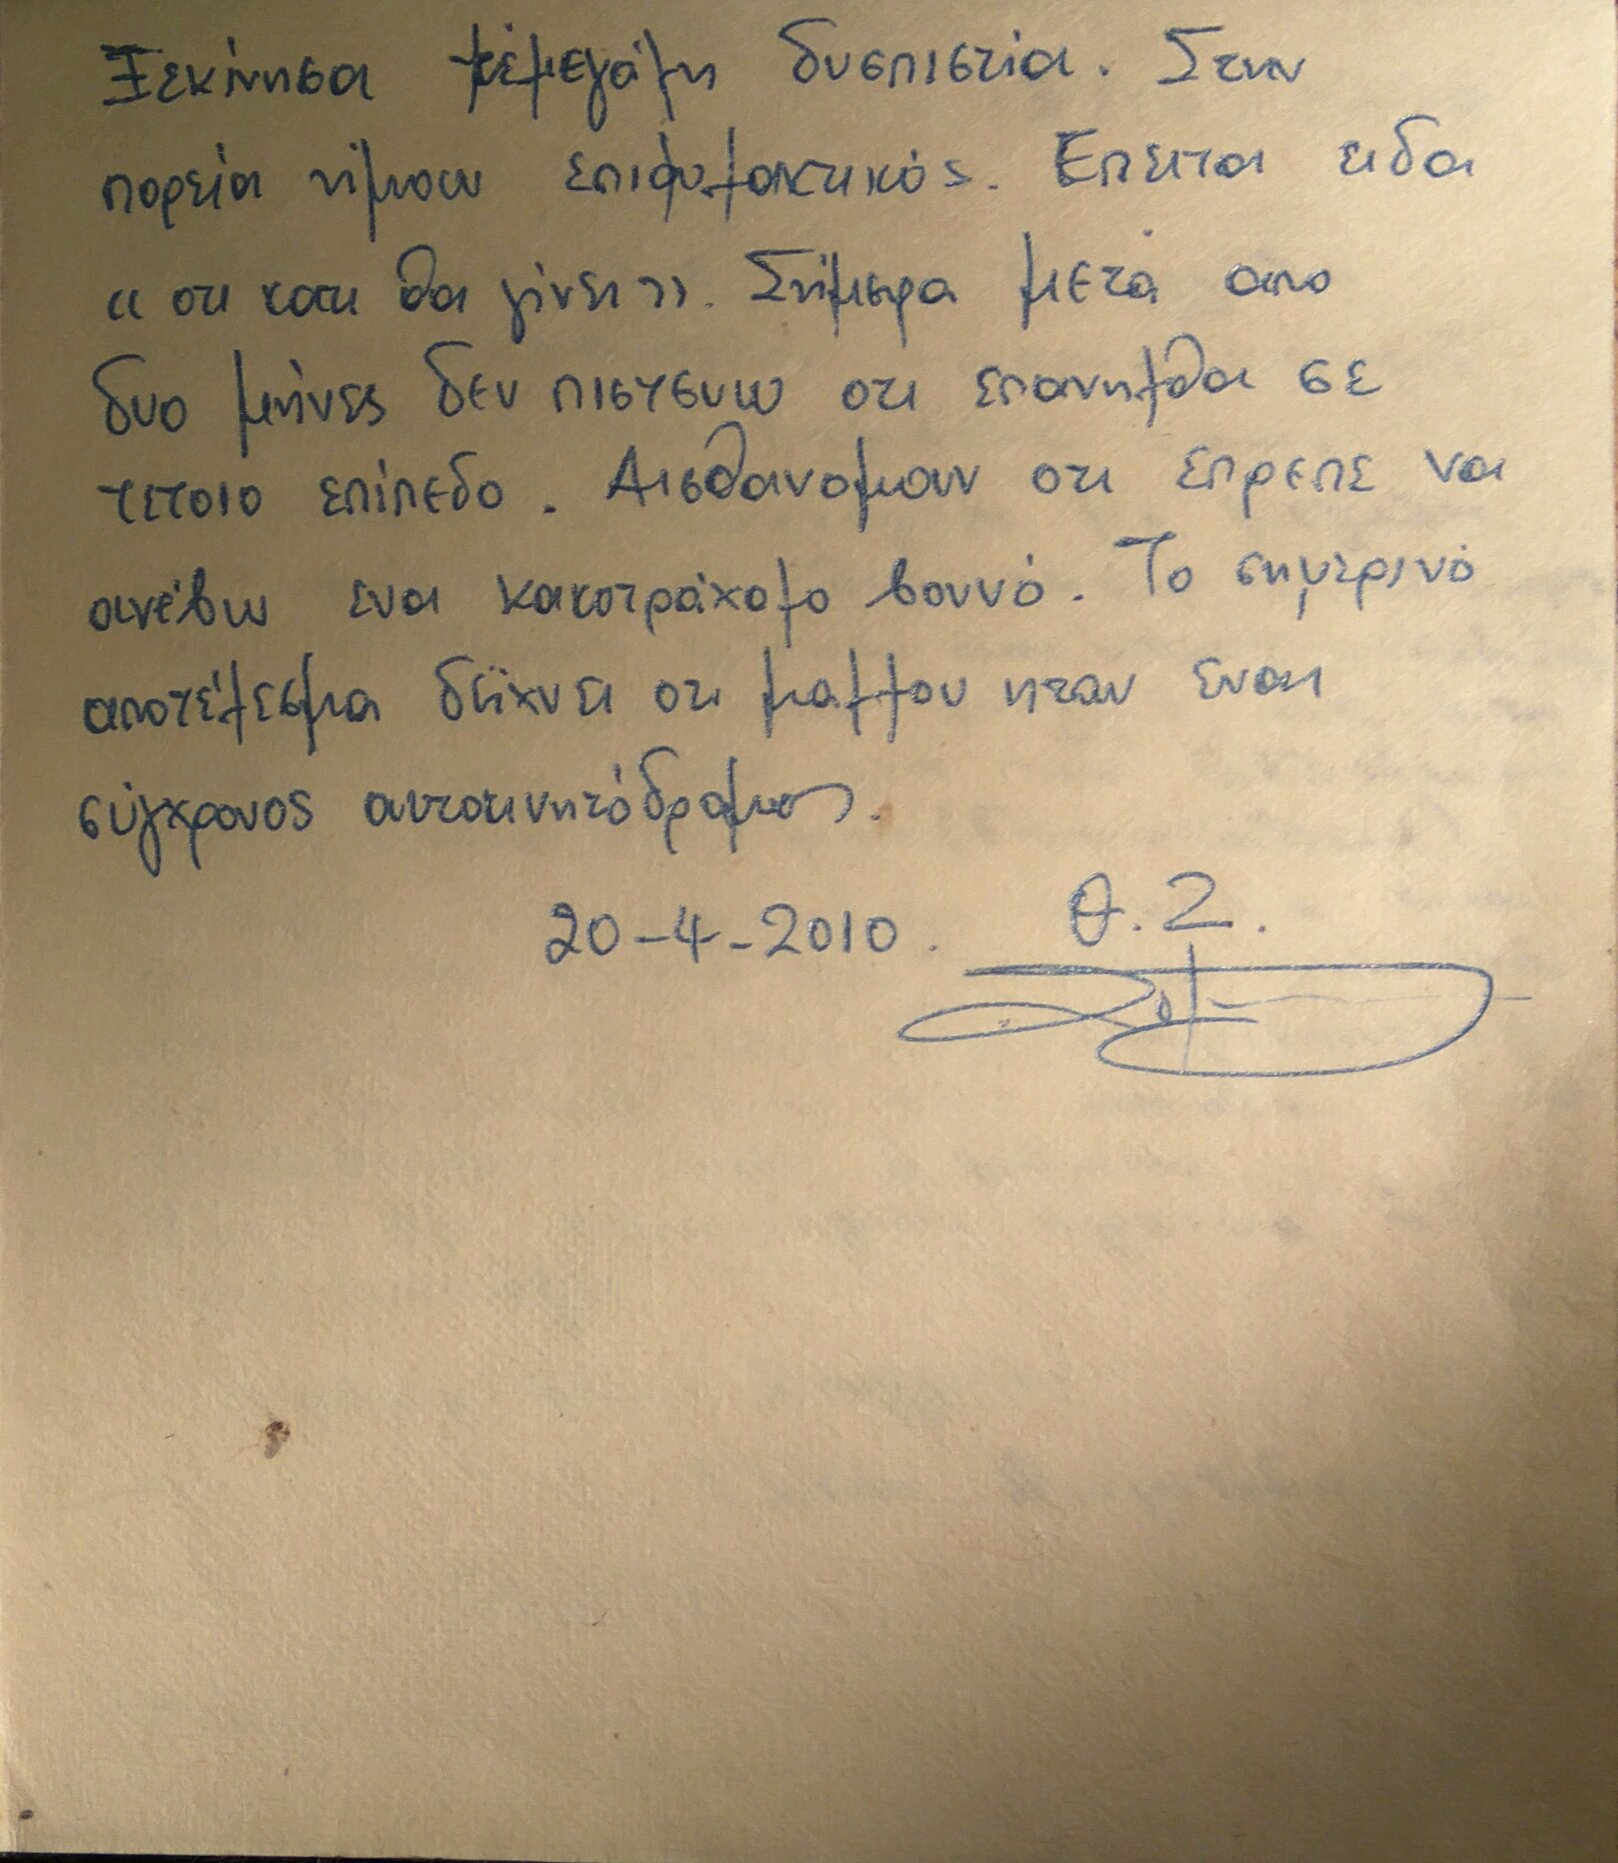 Ξεκίνησα με μεγάλη δυσπιστία. Στην
πορεία ήμουν επιφυλακτικός. Επειτα ειδα
«οτι κατι θα γίνει». Σήμερα μετά απο
δυο μήνες δεν πιστευω οτι επανηλθα σε
τετοιο επίπεδο. Αισθανομουν οτι επρεπε να
ανέβω ενα κακοτράχαλο βουνό. Το σημερινό
αποτέλεσμα δείχνει οτι μαλλον ηταν ενας
σύγχρονος αυτοκινητόδρομος.
20-4-2010. Θ. Ζ.